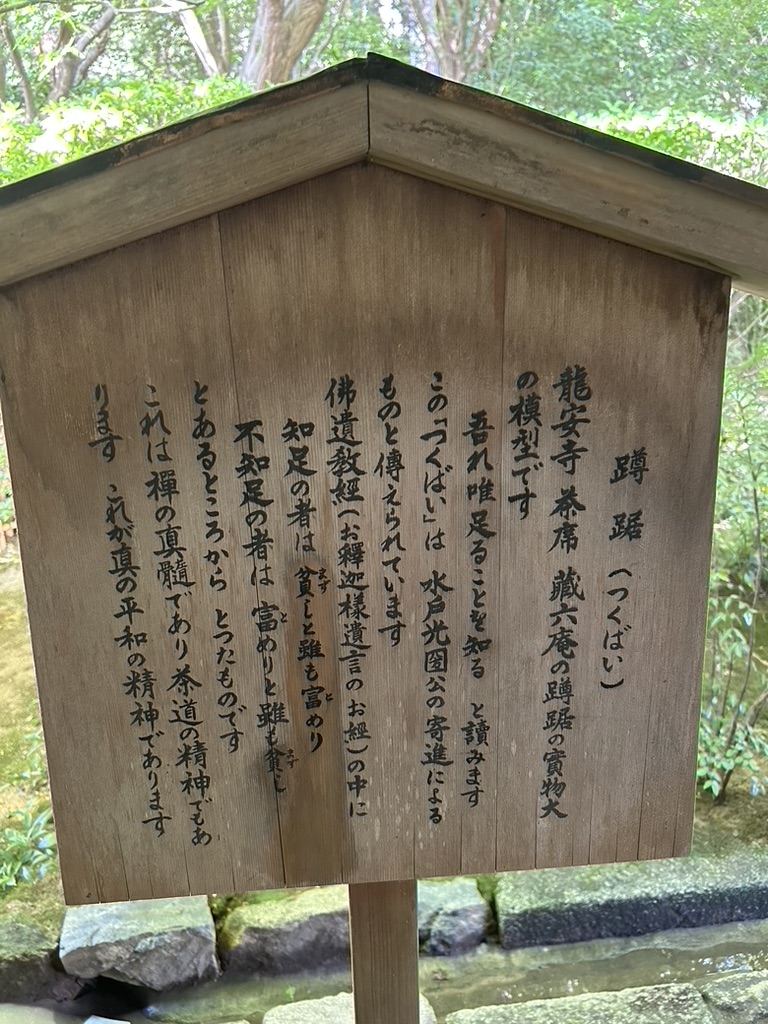 蹲踞(つくばい)
龍安寺 茶席 藏六庵の蹲踞の實物大
の模型です
吾れ唯足ることを知る と讀みます
この「つくばい」は 水戸光圀公の寄進による
ものと傳えられています
佛遺教經(お釋迦様遺言の お經)の中に
知足の者は 貧しと雖も富めり
まず
と
不知足の者は 富めりと雖も貧し
と
まず
とあるところから とつたものです
これは禪の真髓であり茶道の精神でもあ
ります これが真の平和の精神であります